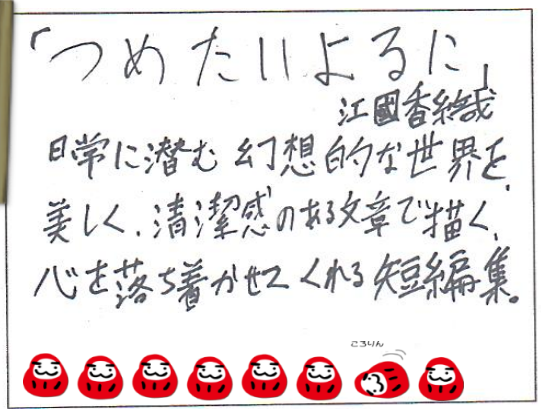 「つめたいよるに」
江國香織
日常に潜む幻想的な世界を、
美しく、清潔感のある文章で描く、
心を落ち着かせてくれる短編集。
ころりん